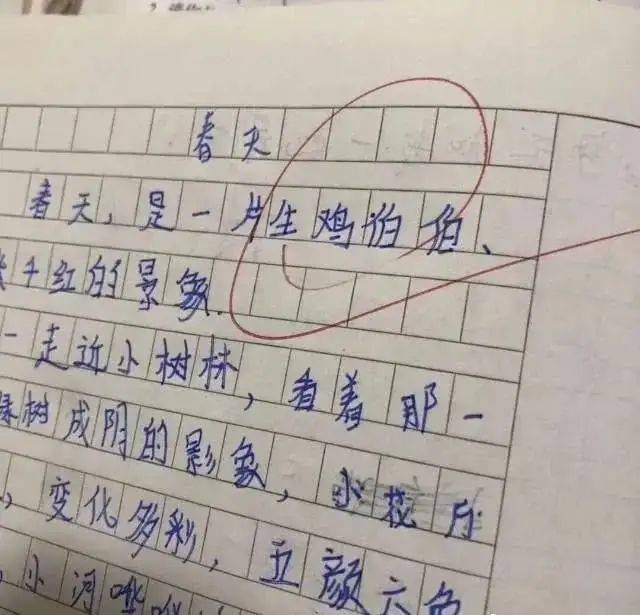 春天
春天，是一片生鸡伯伯、
千红的景象.
一走近小树林，看着那一
绿树成阴的影象，小花
，变化多彩，五颜六色
，小河哗哗